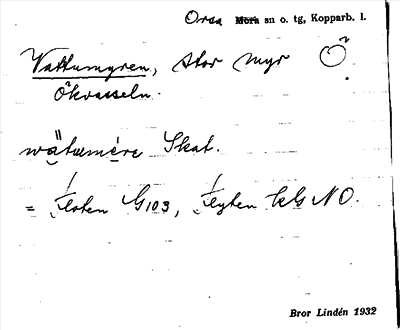 Orsa Mora sn o. tg, Kopparb. l.
Vattumyren, stor myr Ö
Ökvasseln.
wätumére Skat.
= Floten G103, Flyten kG NO.
Bror Lindén 1932